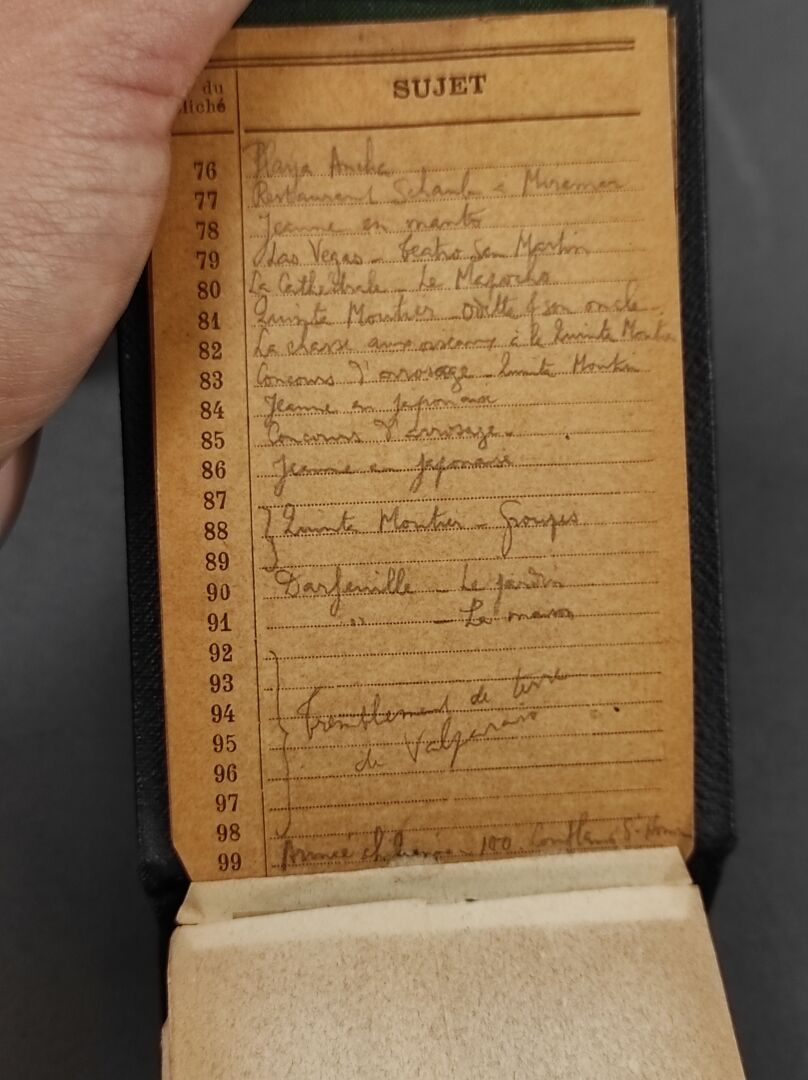 du
liché
SUJET
76 Playa Ancha
77 Restaurant Schaub a Miramar
78 Jeanne en manto
79 Las Vegas - Teatro San Martin
80 La Cathédrale - Le Mapocho
81 Quinta Montier - Odette & son oncle
82 La chasse aux oiseaux à la Quinta Montier
83 Concours d'arrosage - Quinta Montier
84 Jeanne en japonaise
85 Concours d'arrosage -
86 Jeanne en japonaise
87
88 Quinta Montier - Groupes
89
90 Darfeuille - Le jardin
91 " - La maison
92
93
94 Tremblement de terre
95 de Valparaiso
96
97
98
99 Armée chilienne - 100 Conflans